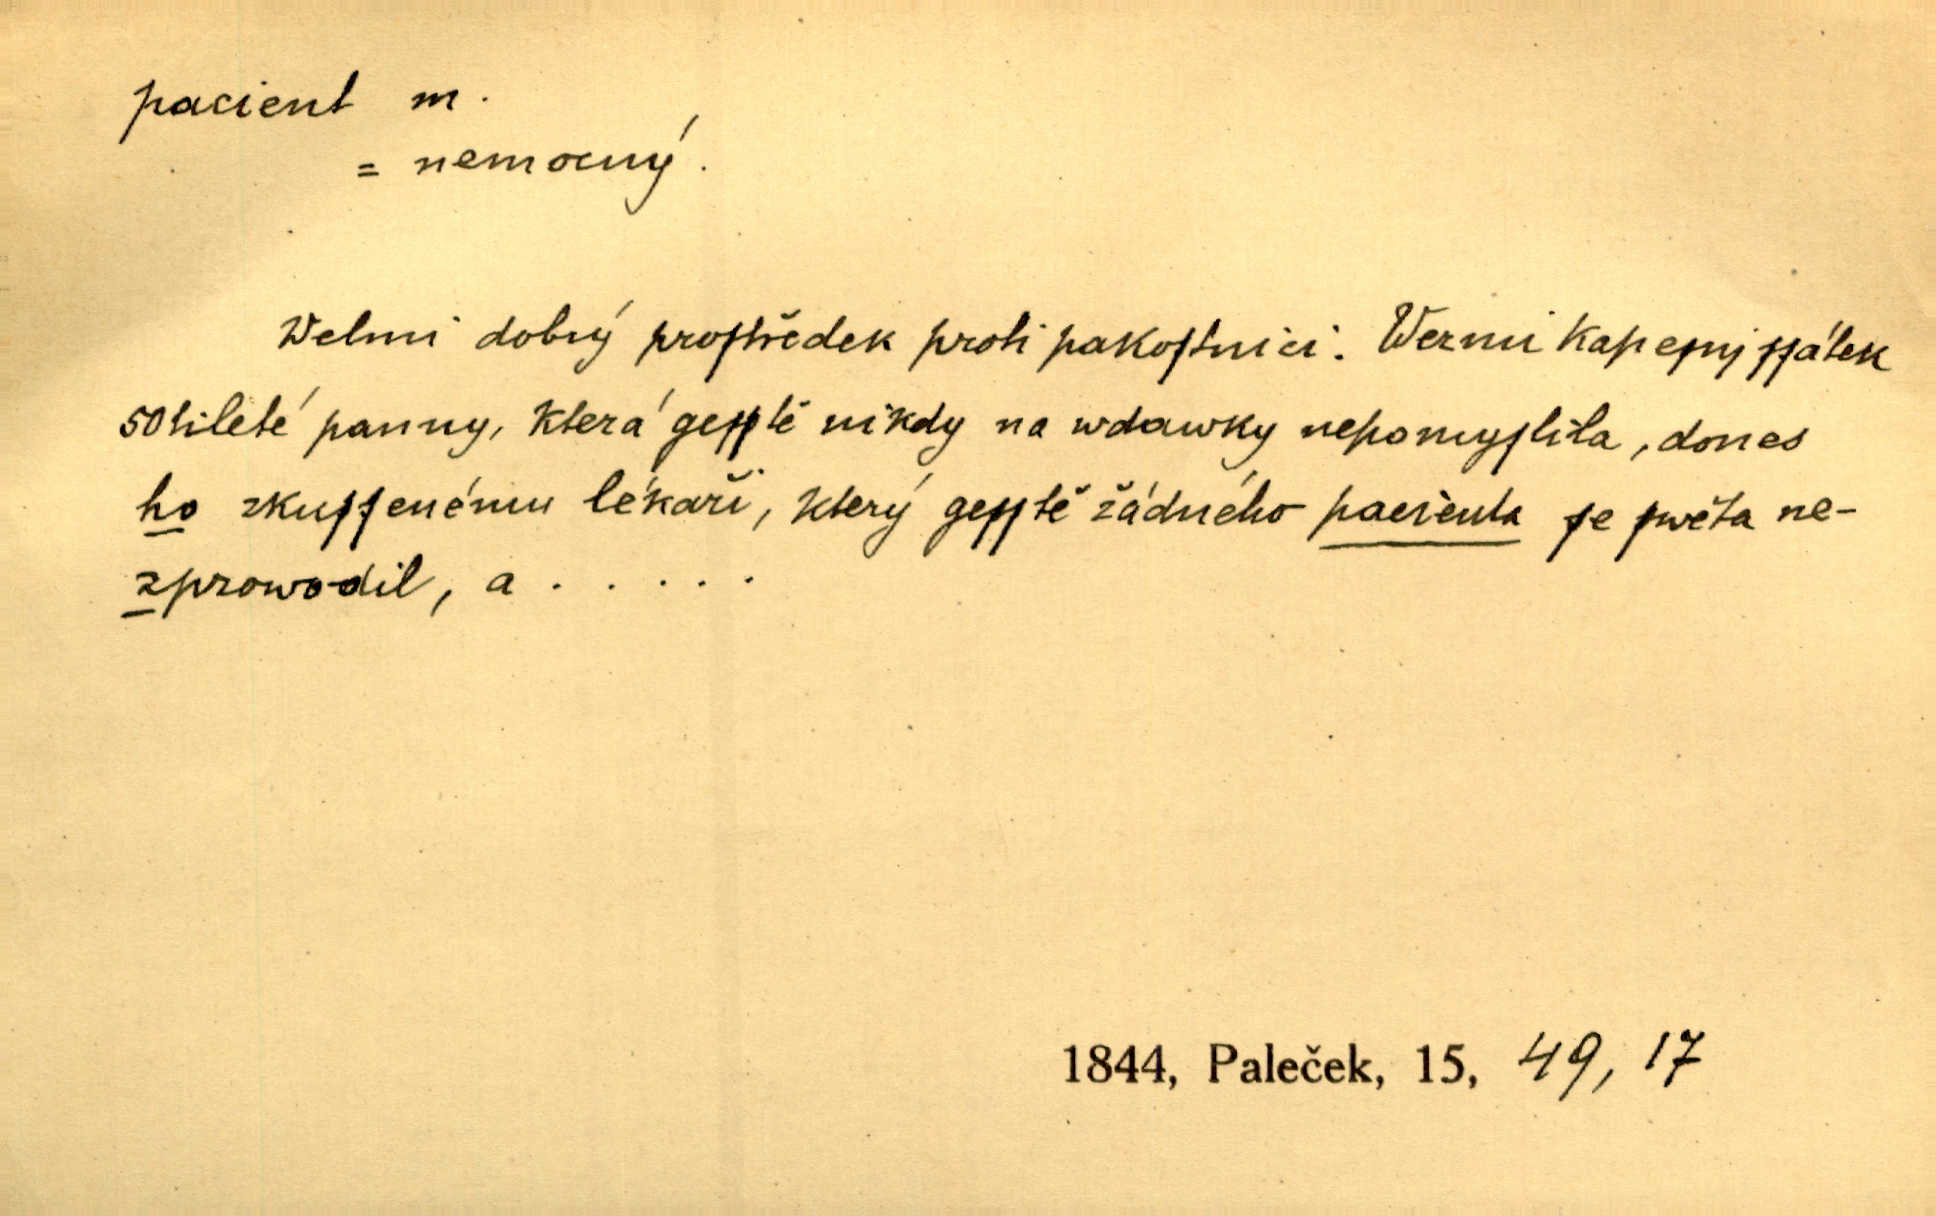 pacient m.
= nemocný.
Welmi dobrý proſtředek proti pakoſtnici. Wezmi kapeſnj ſſátek
50tileté panny, která geſſtě nikdy na wdawky nepomyſlila, dones
ho zkuſſenému lékaři, který geſſtě žádného pacienta ſe ſwěta ne-
zprowodil, a . . . . .
1844, Paleček, 15, 49, 17